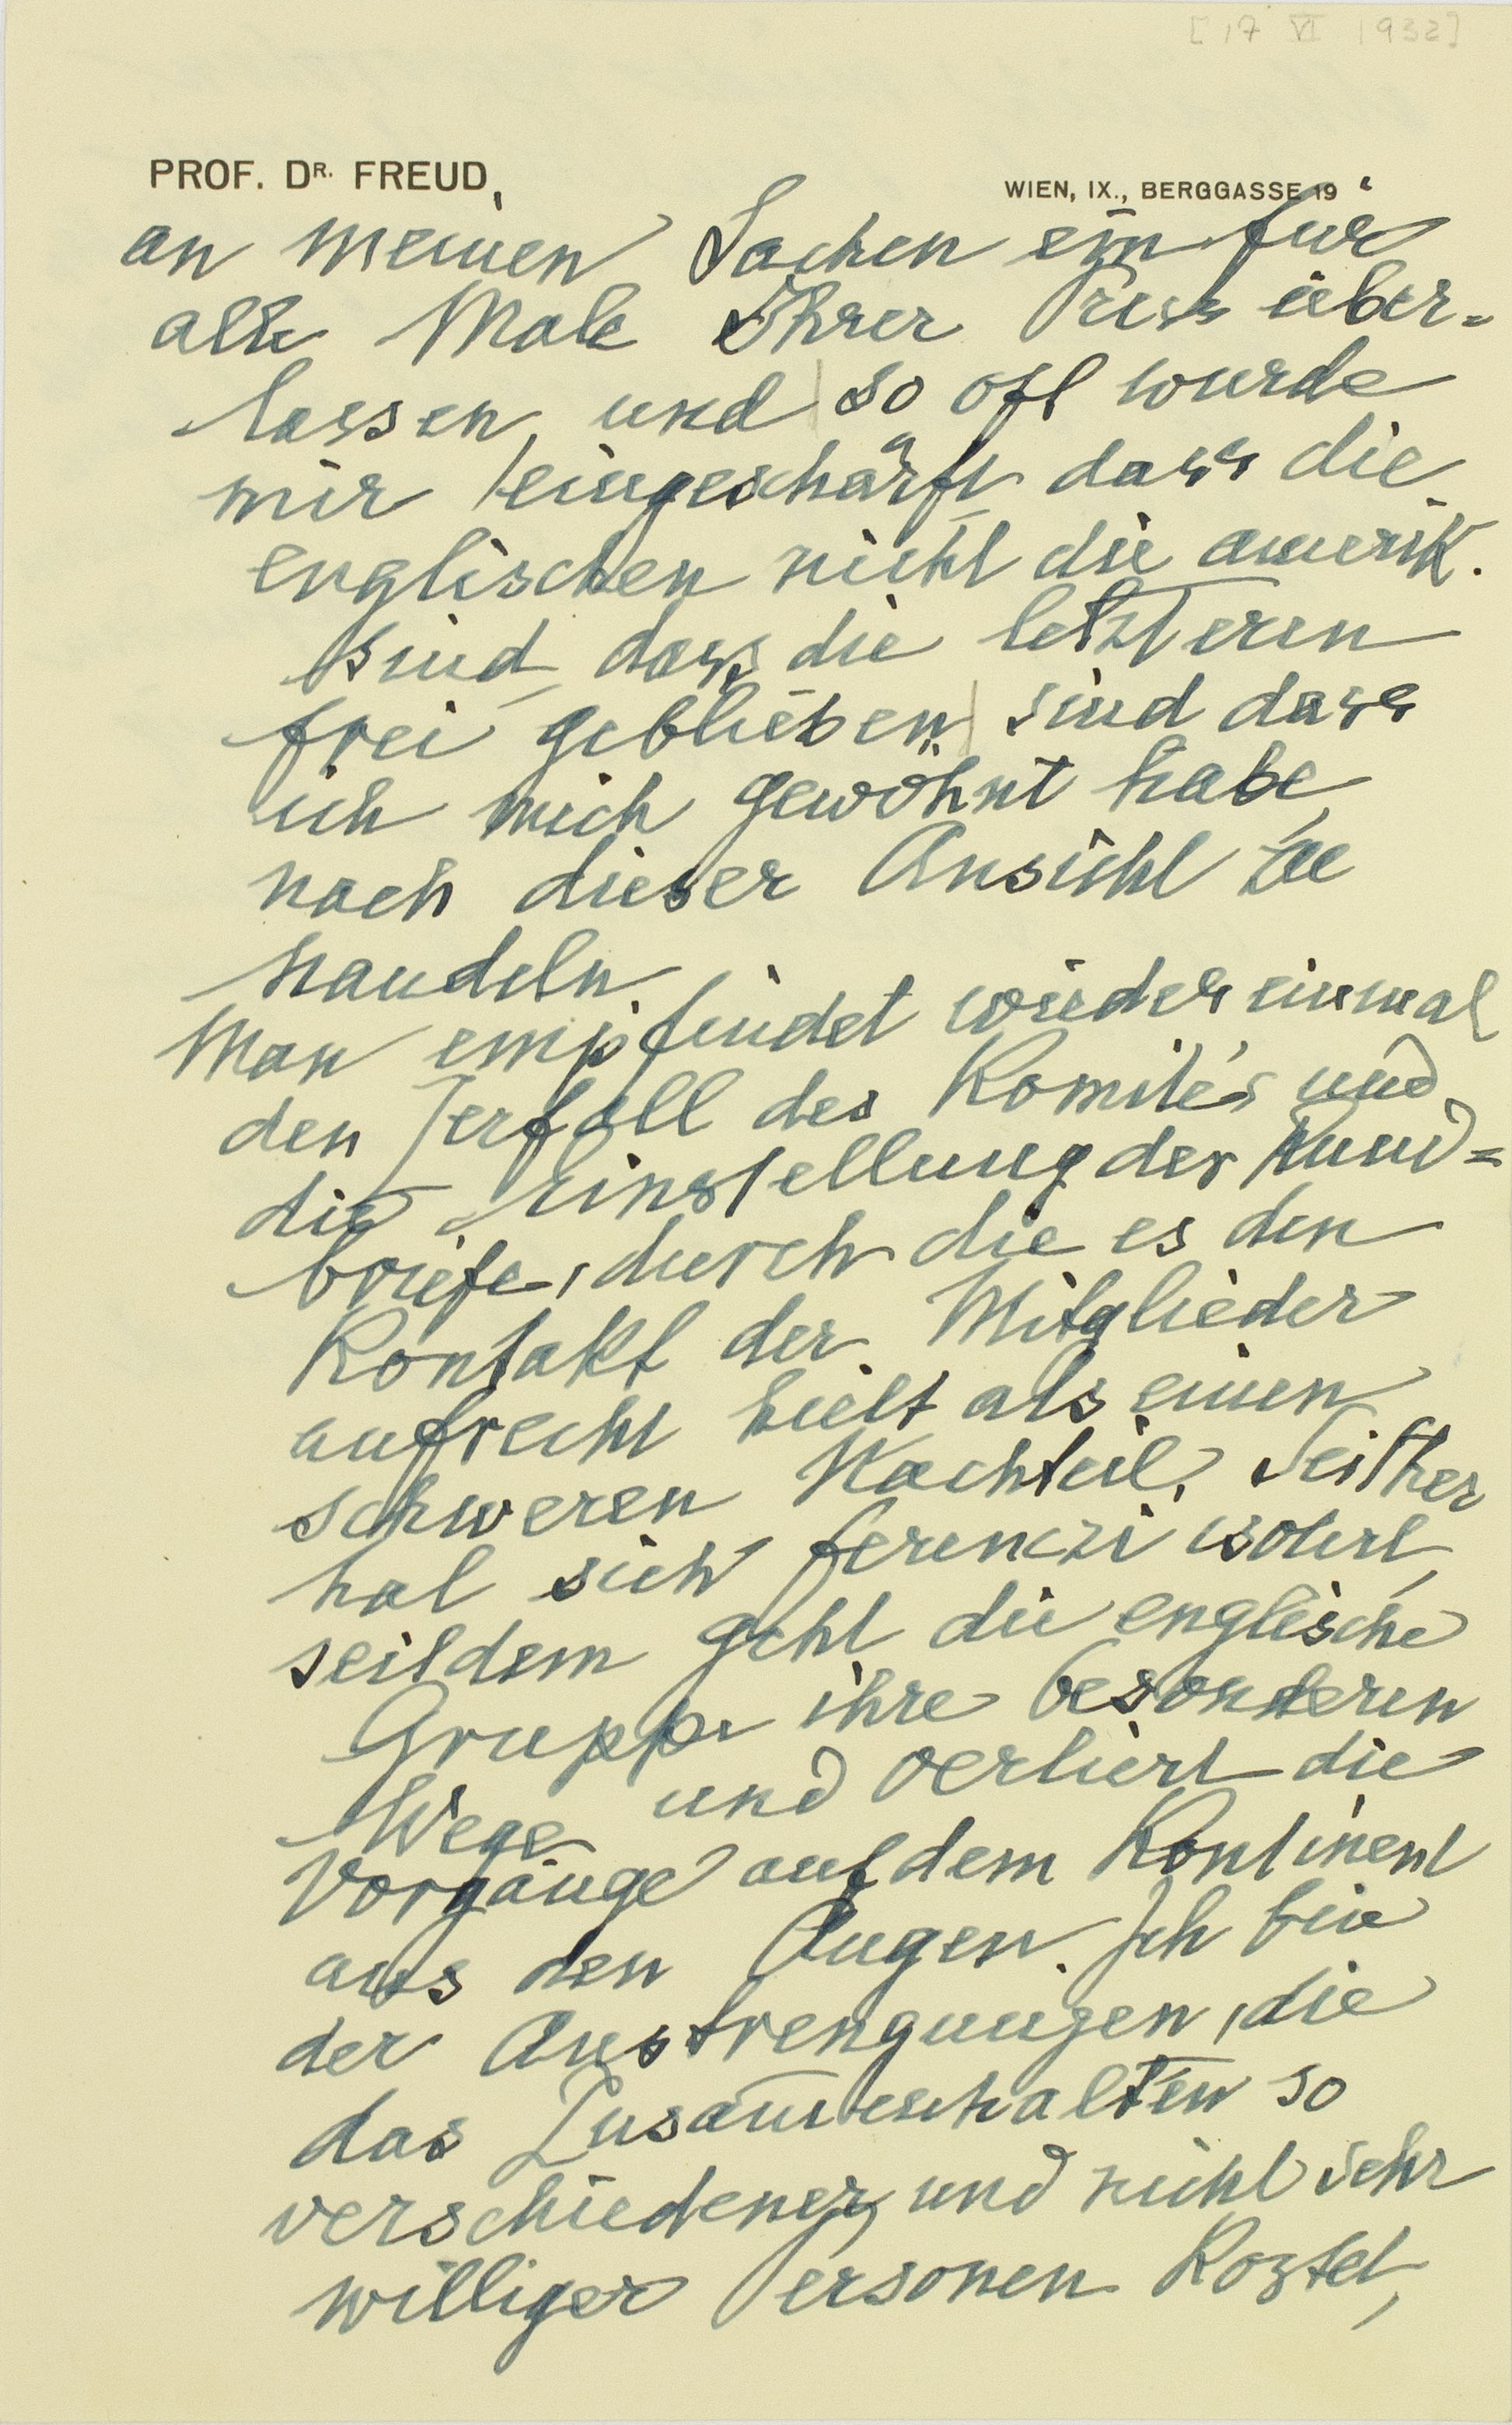 [17 VI 1932]
PROF. DR. FREUD
WIEN, IX., BERGGASSE 19
an meinen Sachen ein für
alle Male Ihrer Press über-
lassen, und so oft wurde
mir eingeschärft, dass die
englischen nicht die amerik.
sind, dass die letzteren
frei geblieben sind dass
ich mich gewöhnt habe,
nach dieser Ansicht zu
handeln.
Man empfindet wieder einmal
den Zerfall des Komités und
die Einstellung der Rund-
briefe, durch die es den
Kontakt der Mitglieder
aufrecht hielt als einen
schweren Nachteil. Seither
hat sich Ferenczi isolirt,
seitdem geht die englische
Gruppe ihre besonderen
Wege und verliert die
Vorgänge auf dem Kontinent
aus den Augen. Ich bin
der Anstrengungen, die
das Zusam̄enhalten so
verschiedener und nicht sehr
williger Personen kostet,